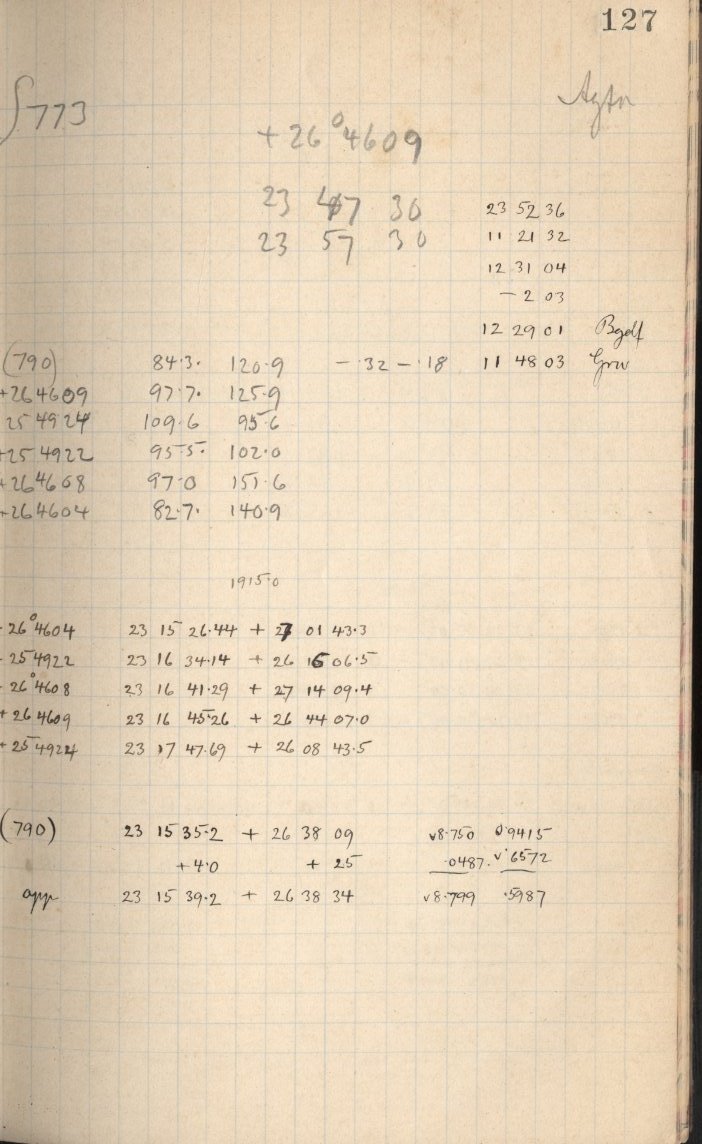 127
∫773
+26°4609
23 47 30
23 57 30
23 52 36
11 21 32
12 31 04
- 2 03
12 29 01 Bgdf
(790) 84.3. 120.9 - .32 - .18 11 48 03 Grw
+264609 97.7. 125.9
254924 109.6 95.6
+254922 95.5. 102.0
+264608 97.0 151.6
+264604 82.7. 140.9
1915.0
26°4604 23 15 26.44 + 27 01 43.3
254922 23 16 34.14 + 26 16 06.5
26°4608 23 16 41.29 + 27 14 09.4
+264609 23 16 45.26 + 26 44 07.0
+254924 23 17 47.69 + 26 08 43.5
(790) 23 15 35.2 + 26 38 09 v8.750 0.9415
+4.0 + 25 .0487. v.6572
app 23 15 39.2 + 26 38 34 v8.799 .5987